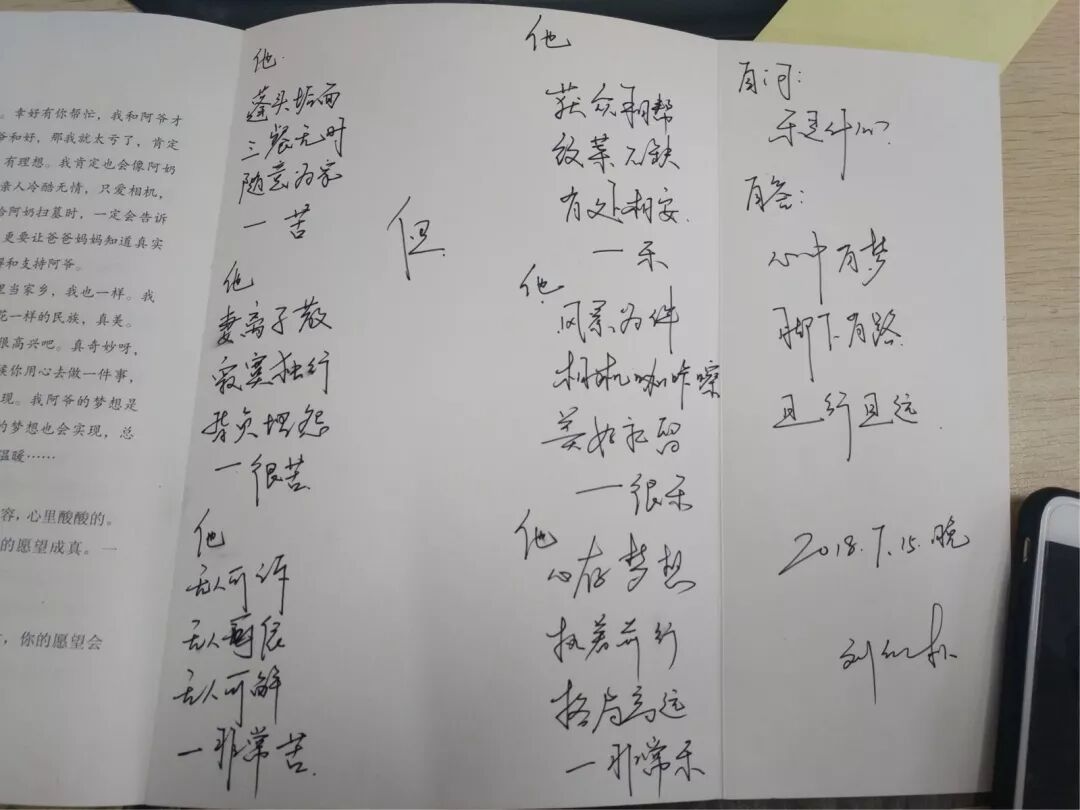 。幸好有你帮忙，我和阿爷才
爷和好，那我就太亏了，肯定
有理想。我肯定也会像阿奶
亲人冷酷无情，只爱相机，
给阿奶扫墓时，一定会告诉
更要让爸爸妈妈知道真实
解和支持阿爷。
里当家乡，我也一样。我
花一样的民族，真美。
很高兴吧。真奇妙呀，
候你用心去做一件事，
现。我阿爷的梦想是
的梦想也会实现，总
温暖……
容，心里酸酸的。
的愿望成真。一
，你的愿望会
他
蓬头垢面
三餐无时
随意为家
一苦
他
妻离子散
寂寞独行
背负埋怨
一很苦
他
无人可诉
无人可依
无人可解
一非常苦
但
他
获众相帮
饭菜不缺
有处相安
一乐
他
风景为伴
相机咖咔嚓
美好永留
一很乐
他
心存梦想
执着前行
格局高远
一非常乐
自问：
乐是什么？
自答：
心中有梦
脚下有路
且行且远
2018.7.15.晚
刘